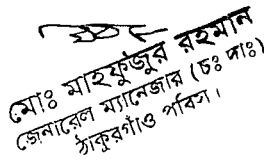 মোঃ মাহফুজুর রহমান
জেনারেল ম্যানেজার (চঃ দাঃ)
ঠাকুরগাঁও পবিস।